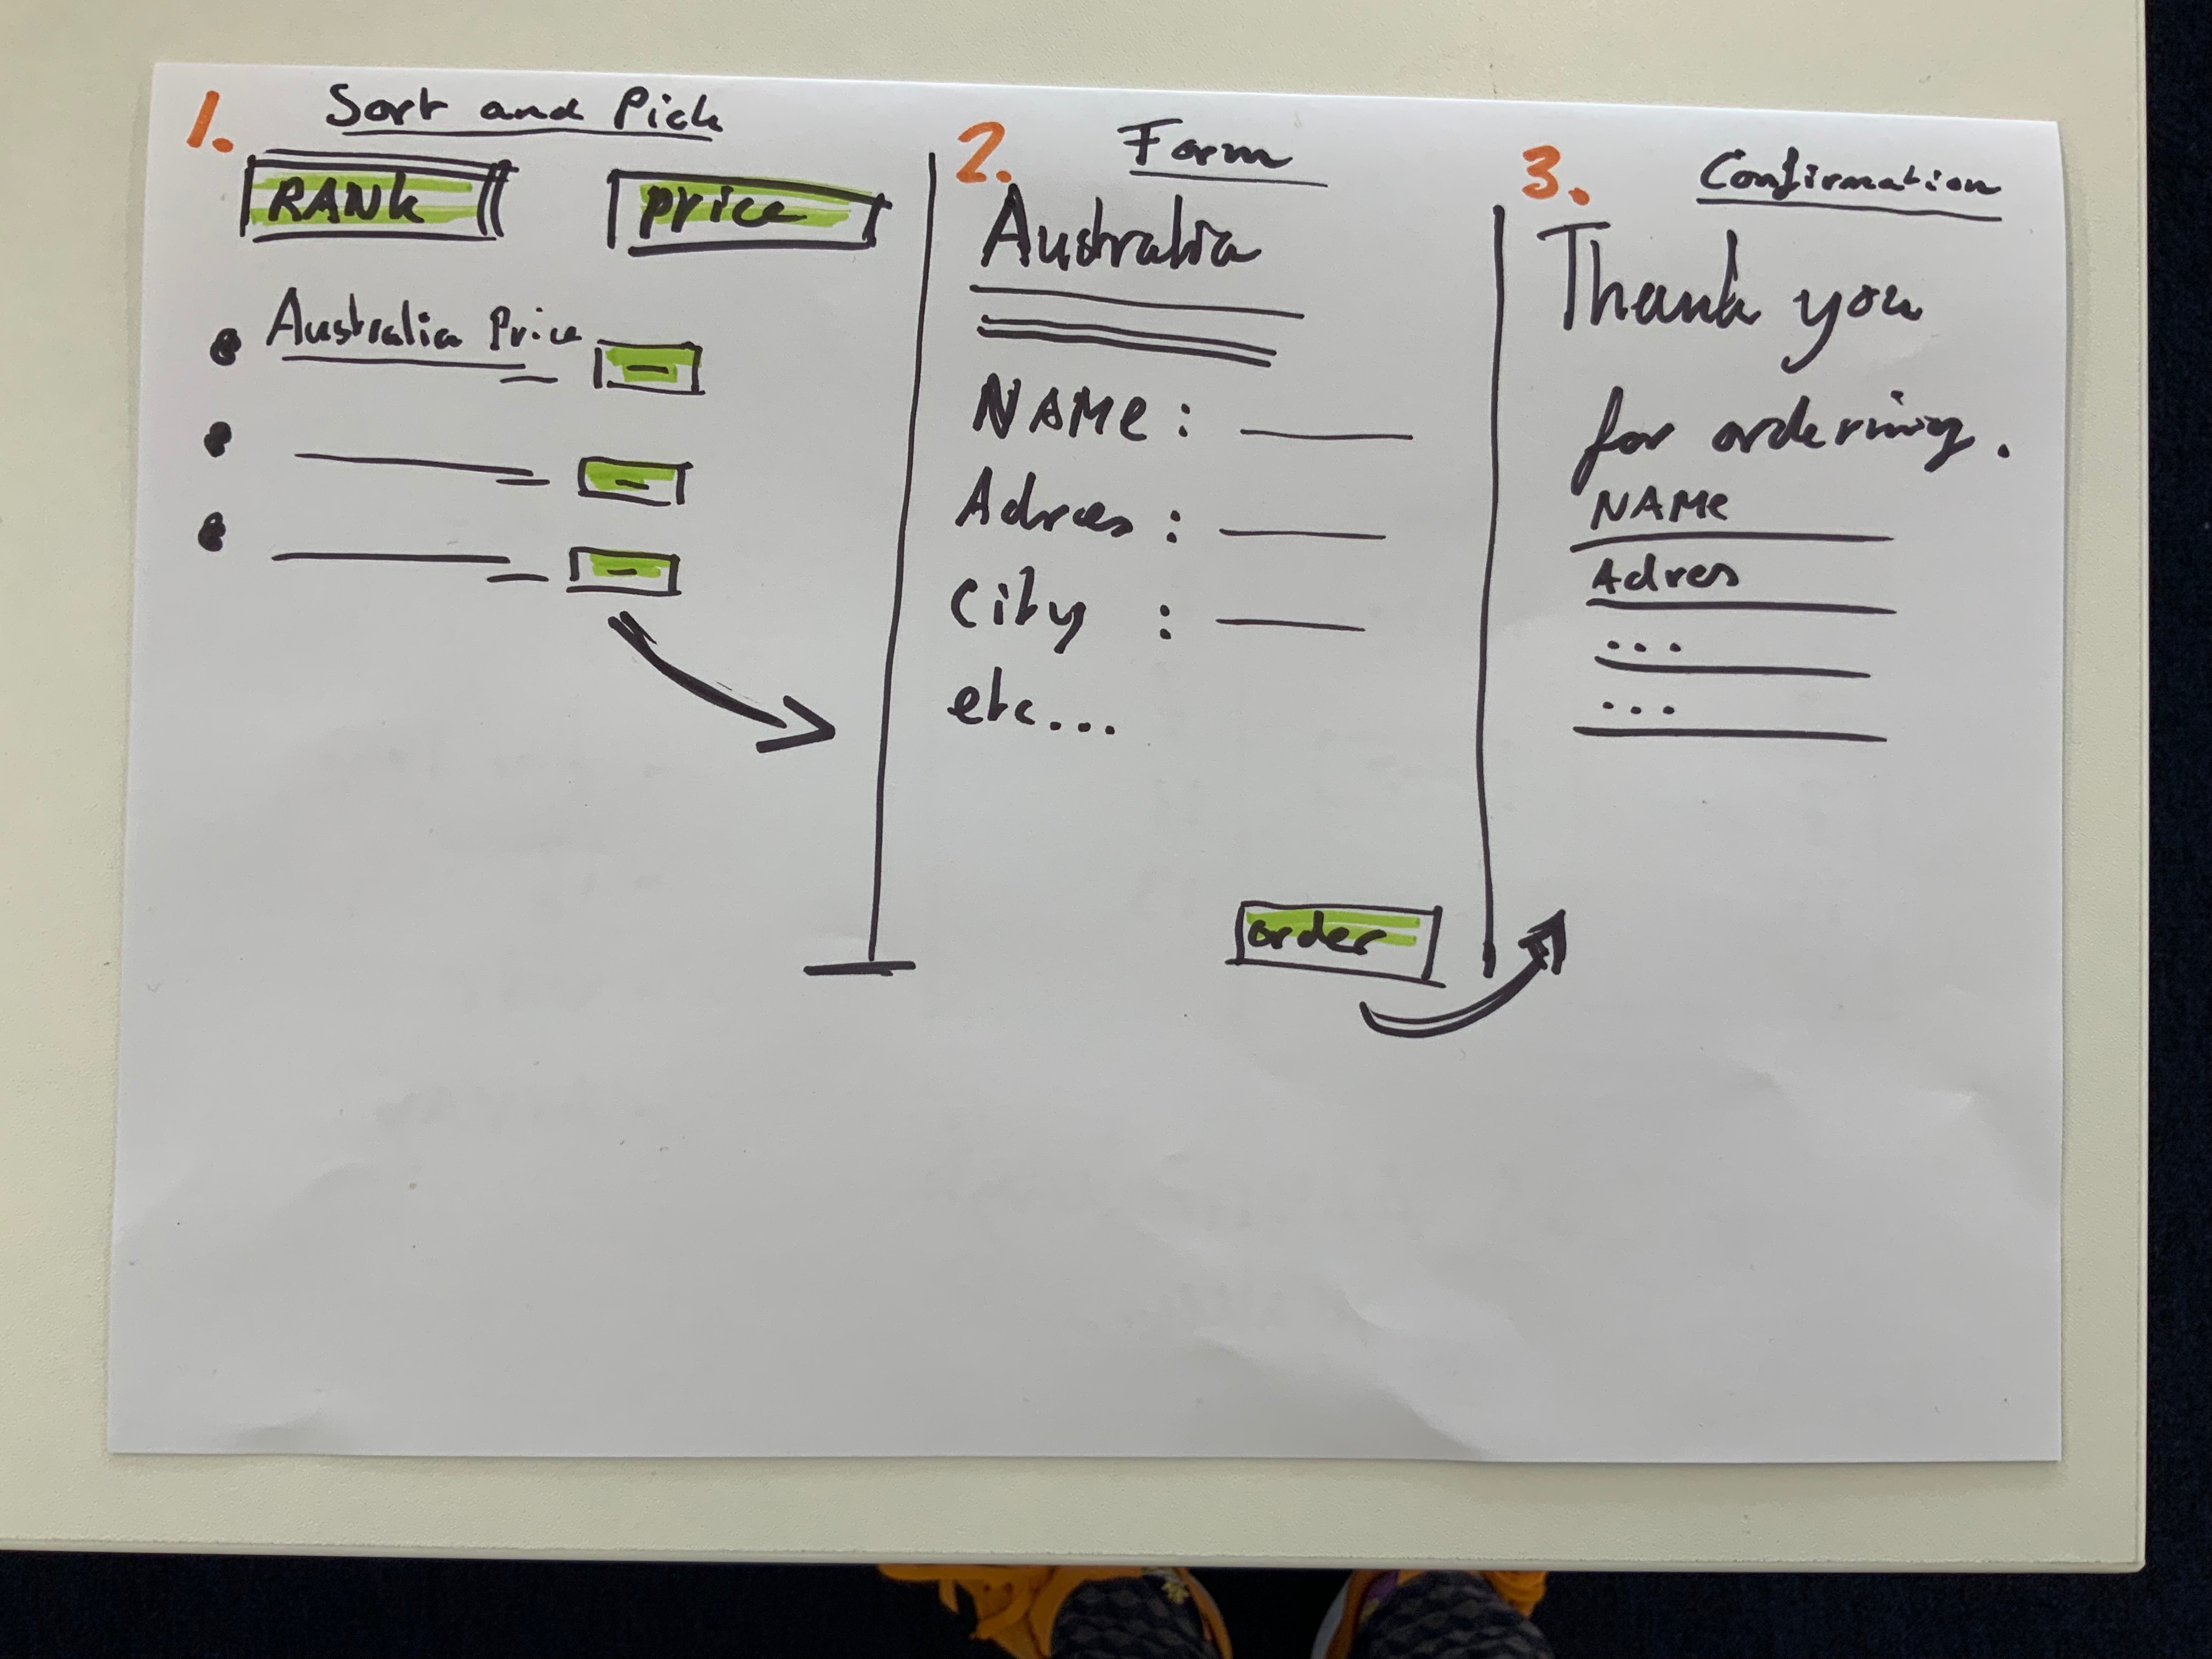 1. Sort and Pick
RANK
price
Australia Price
2. Form
Australia
NAMe :
Adres :
City :
etc...
order
3. Confirmation
Thank you
for ordering.
NAMe
Adres
...
...